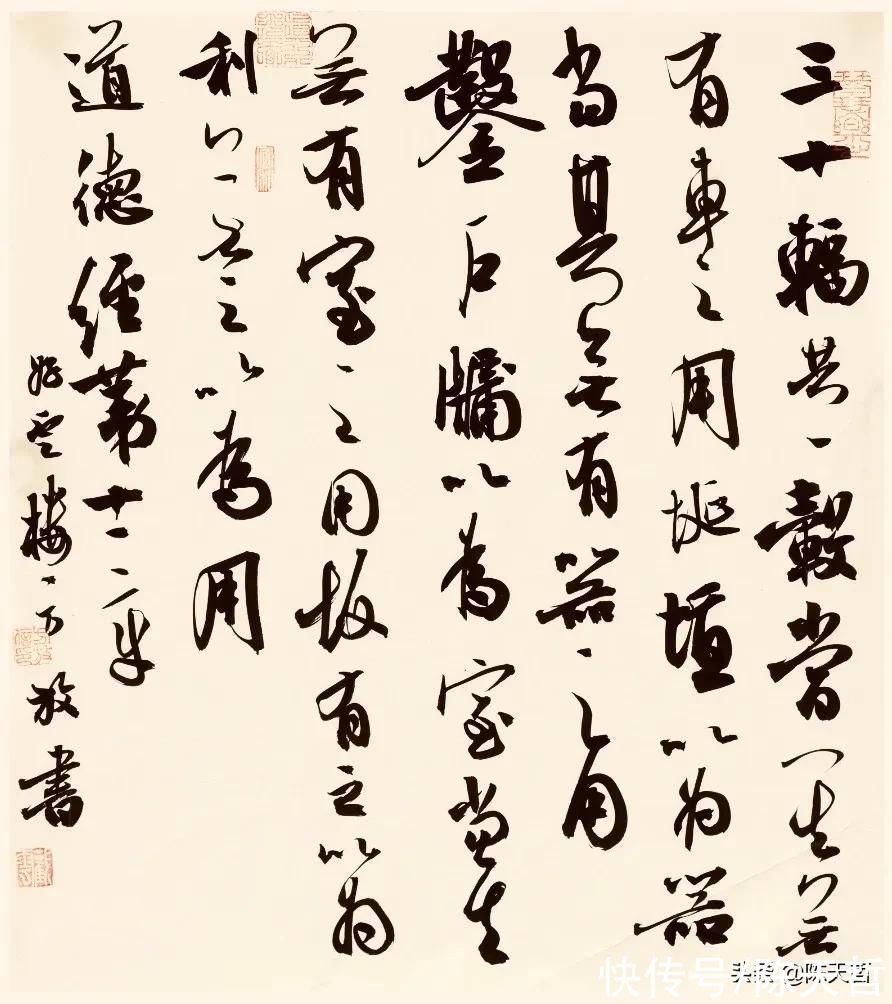 三十輻共一轂當其無
有車之用埏埴以為器
當其無有器之用
鑿戶牖以為室當其
無有室之用故有之以為
利無之以為用
道德經第十一章
雲樓放書
快传号/陈天哲
头条 @陈天哲